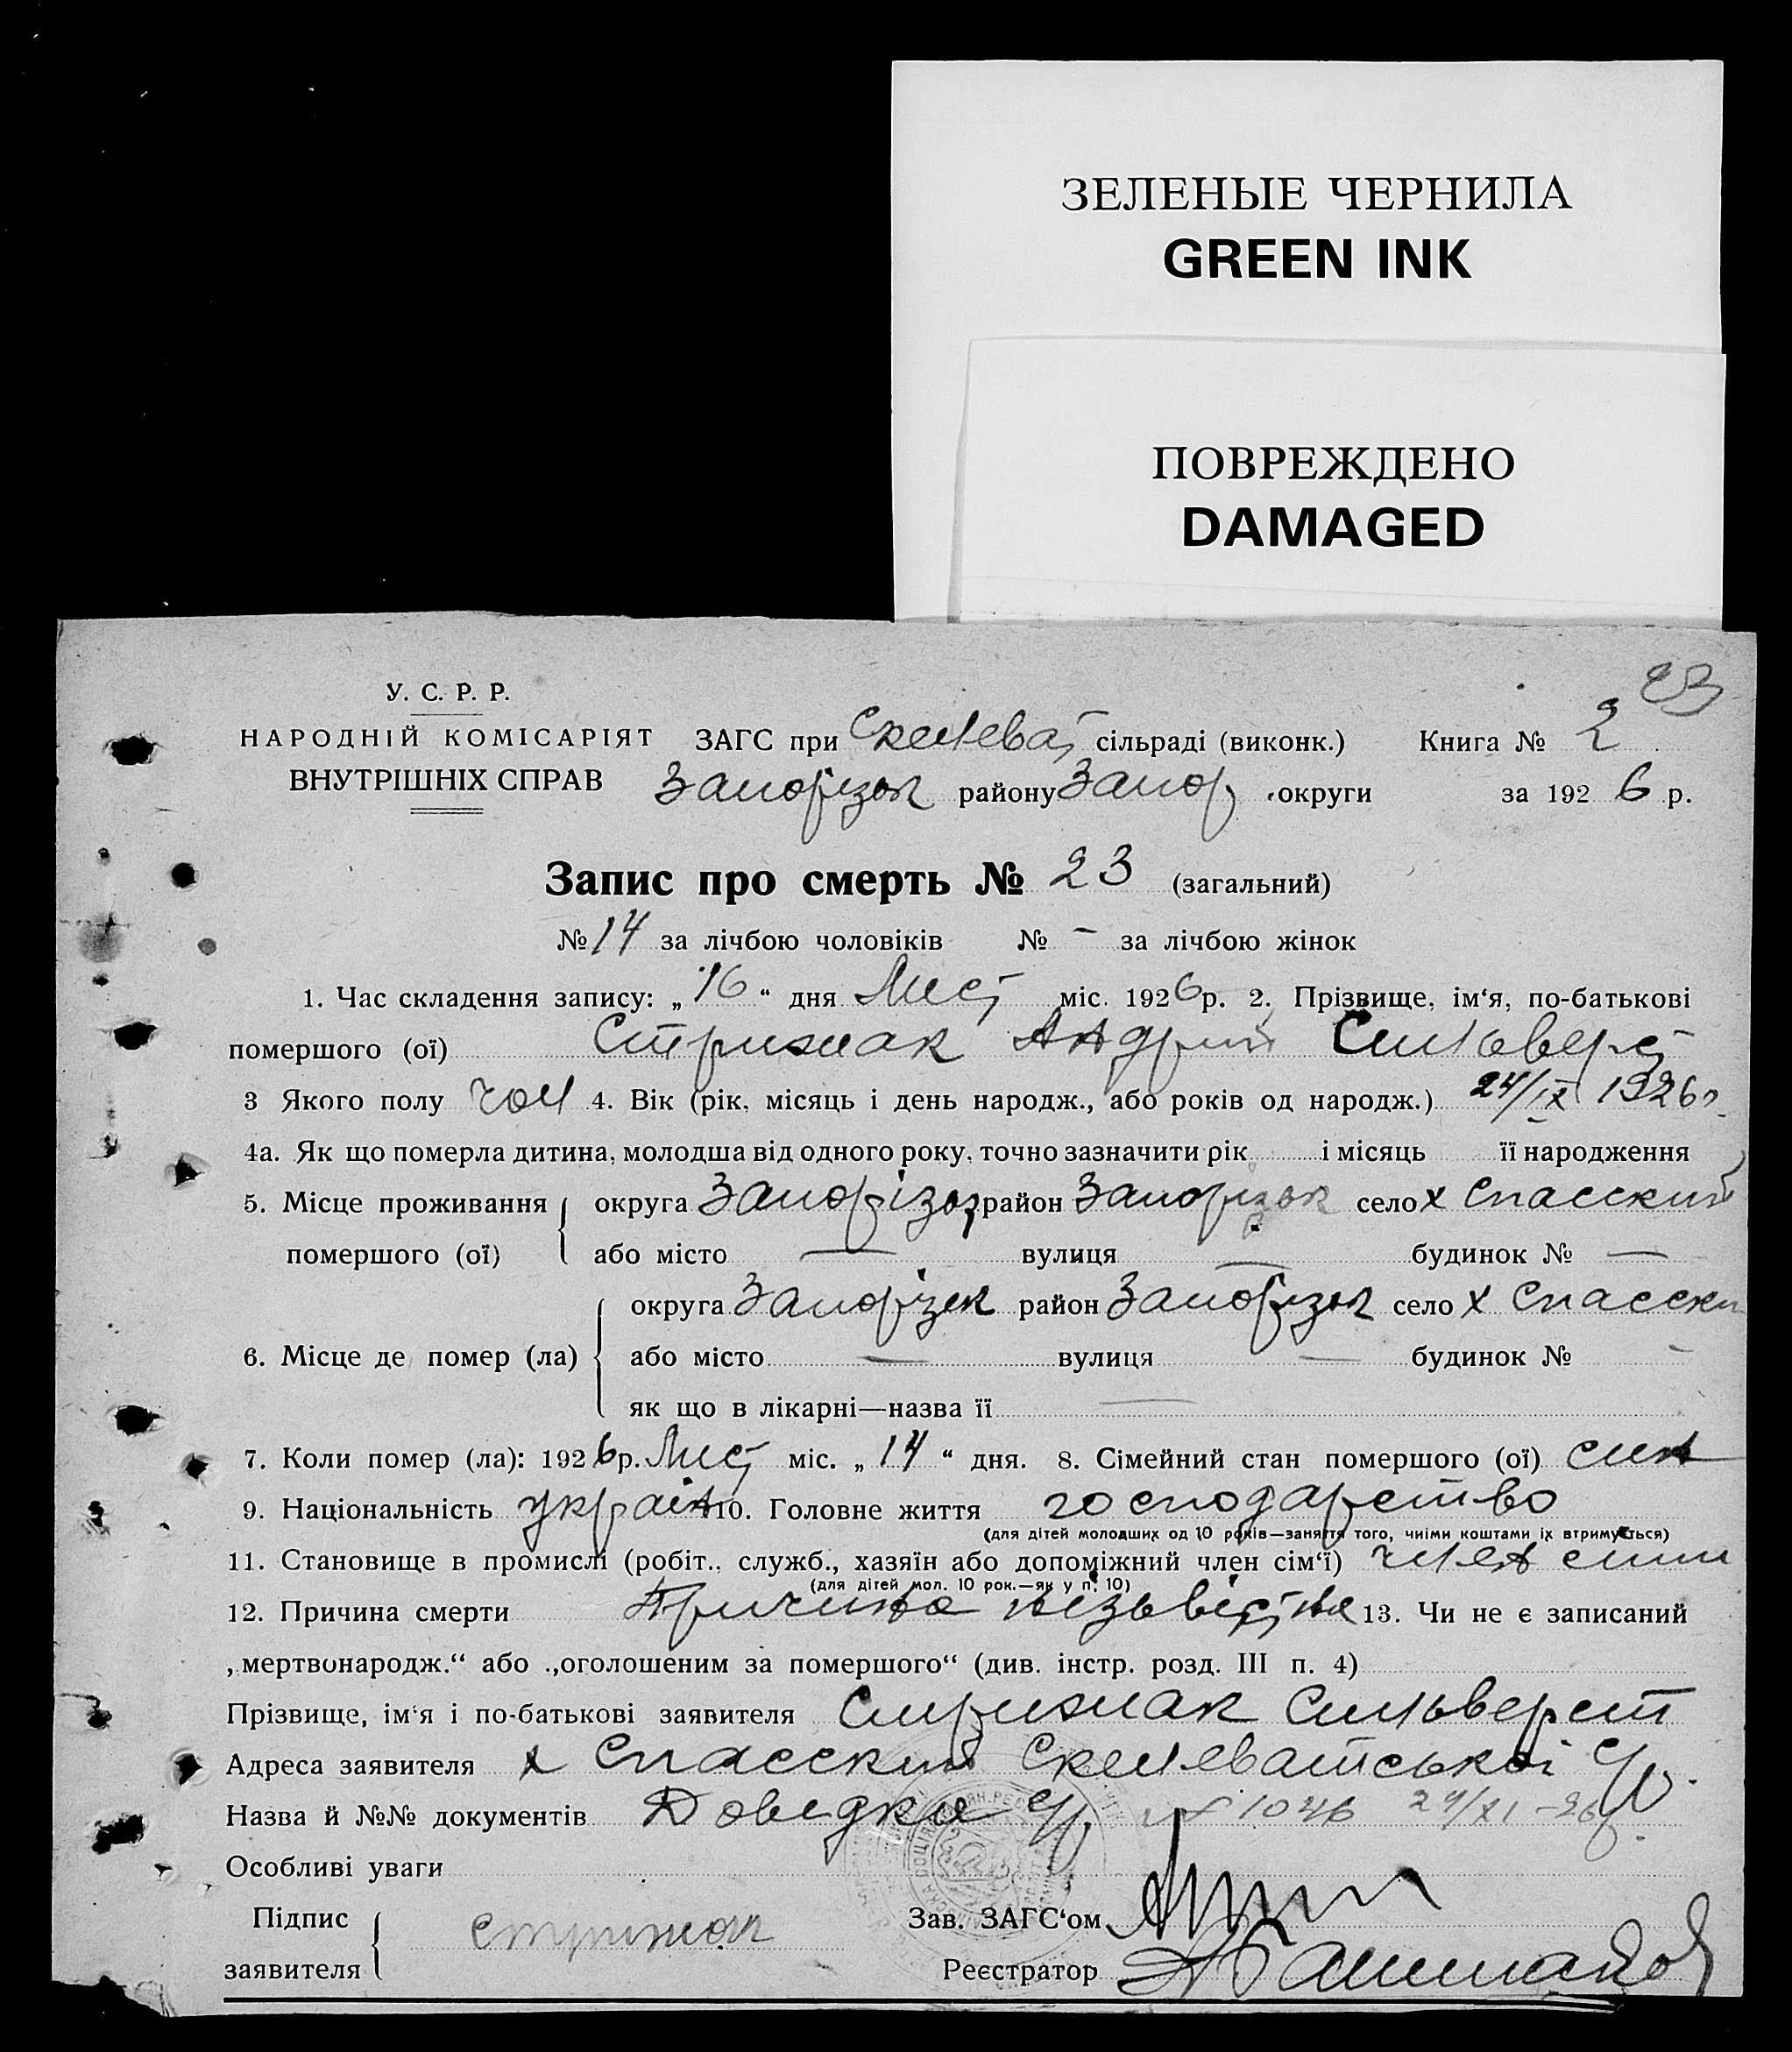 ЗЕЛЕНЫЕ ЧЕРНИЛА
GREEN INK
ПОВРЕЖДЕНО
DAMAGED
23
У. С. Р. Р.
НАРОДНІЙ КОМІСАРІЯТ ЗАГС при Скелеват сільраді (виконк.) Книга № 2
ВНУТРІШНІХ СПРАВ Запорізьк району Запор. округи за 1926 р.
Запис про смерть № 23 (загальний)
№ 14 за лічбою чоловіків № - за лічбою жінок
1. Час складення запису: „16“ дня Лист міс. 1926 р. 2. Прізвище, ім‘я, по-батькові
помершого (ої) Стрижак Андрий Сильверст
3 Якого полу чол 4. Вік (рік, місяць і день народж., або років од народж.) 24/IX 1926 р.
4а. Як що померла дитина, молодша від одного року, точно зазначити рік і місяць її народження
5. Місце проживання округа Запоріз район Запорізьк село х Спасский
помершого (ої) або місто — вулиця — будинок № —
округа Запорізьк район Запорізьк село х Спасски
6. Місце де помер (ла) або місто — вулиця — будинок № -
як що в лікарні—назва її —
7. Коли помер (ла): 1926 р. Лист міс. „14“ дня. 8. Сімейний стан помершого (ої) син
9. Національність україн 10. Головне життя господарство
(для дітей молодших од 10 років—заняття того, чиїми коштами їх втримується)
11. Становище в промислі (робіт., служб., хазяїн або допоміжний член сім‘ї) член сими
(для дітей мол. 10 рок.—як у п. 10)
12. Причина смерти Причина 13. Чи не є записаний
„мертвонародж.“ або „оголошеним за помершого“ (див. інстр. розд. III п. 4)
Прізвище, ім‘я і по-батькові заявителя Стрижак Сильверст
Адреса заявителя х Спасский Скелеватської с/р.
Назва й №№ документів Довидка с/р. № 1046 24/XI-26 р.
Особливі уваги
Підпис стрижак Зав. ЗАГС‘ом
заявителя Реєстратор